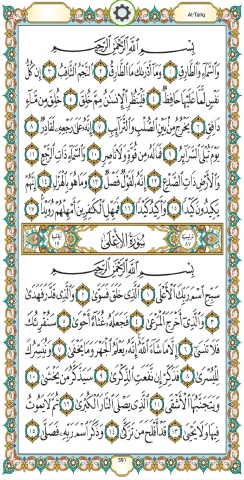 At-Tariq
بِسْمِ اللَّهِ الرَّحْمَٰنِ الرَّحِيمِ
وَالسَّمَاءِ وَالطَّارِقِ ١ وَمَا أَدْرَاكَ مَا الطَّارِقُ ٢ النَّجْمُ الثَّاقِبُ ٣ إِن كُلُّ
نَفْسٍ لَّمَّا عَلَيْهَا حَافِظٌ ٤ فَلْيَنظُرِ الْإِنسَانُ مِمَّ خُلِقَ ٥ خُلِقَ مِن مَّاءٍ
دَافِقٍ ٦ يَخْرُجُ مِن بَيْنِ الصُّلْبِ وَالتَّرَائِبِ ٧ إِنَّهُ عَلَىٰ رَجْعِهِ لَقَادِرٌ ٨
يَوْمَ تُبْلَى السَّرَائِرُ ٩ فَمَا لَهُ مِن قُوَّةٍ وَلَا نَاصِرٍ ١٠ وَالسَّمَاءِ ذَاتِ الرَّجْعِ ١١
وَالْأَرْضِ ذَاتِ الصَّدْعِ ١٢ إِنَّهُ لَقَوْلٌ فَصْلٌ ١٣ وَمَا هُوَ بِالْهَزْلِ ١٤ إِنَّهُمْ
يَكِيدُونَ كَيْدًا ١٥ وَأَكِيدُ كَيْدًا ١٦ فَمَهِّلِ الْكَافِرِينَ أَمْهِلْهُمْ رُوَيْدًا ١٧
ترتيبها ٨٧ سُورَةُ الْأَعْلَىٰ آياتها ١٩
بِسْمِ اللَّهِ الرَّحْمَٰنِ الرَّحِيمِ
سَبِّحِ اسْمَ رَبِّكَ الْأَعْلَى ١ الَّذِي خَلَقَ فَسَوَّىٰ ٢ وَالَّذِي قَدَّرَ فَهَدَىٰ
٣ وَالَّذِي أَخْرَجَ الْمَرْعَىٰ ٤ فَجَعَلَهُ غُثَاءً أَحْوَىٰ ٥ سَنُقْرِئُكَ
فَلَا تَنسَىٰ ٦ إِلَّا مَا شَاءَ اللَّهُ إِنَّهُ يَعْلَمُ الْجَهْرَ وَمَا يَخْفَىٰ ٧ وَنُيَسِّرُكَ
لِلْيُسْرَىٰ ٨ فَذَكِّرْ إِن نَّفَعَتِ الذِّكْرَىٰ ٩ سَيَذَّكَّرُ مَن يَخْشَىٰ ١٠
وَيَتَجَنَّبُهَا الْأَشْقَى ١١ الَّذِي يَصْلَى النَّارَ الْكُبْرَىٰ ١٢ ثُمَّ لَا يَمُوتُ
فِيهَا وَلَا يَحْيَىٰ ١٣ قَدْ أَفْلَحَ مَن تَزَكَّىٰ ١٤ وَذَكَرَ اسْمَ رَبِّهِ فَصَلَّىٰ ١٥
591